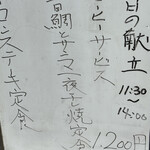 日の献立
11:30〜
14:00
ーヒーサービス
首鯛とサンマ一夜干焼定食
1,200円
ロンステーキ定食